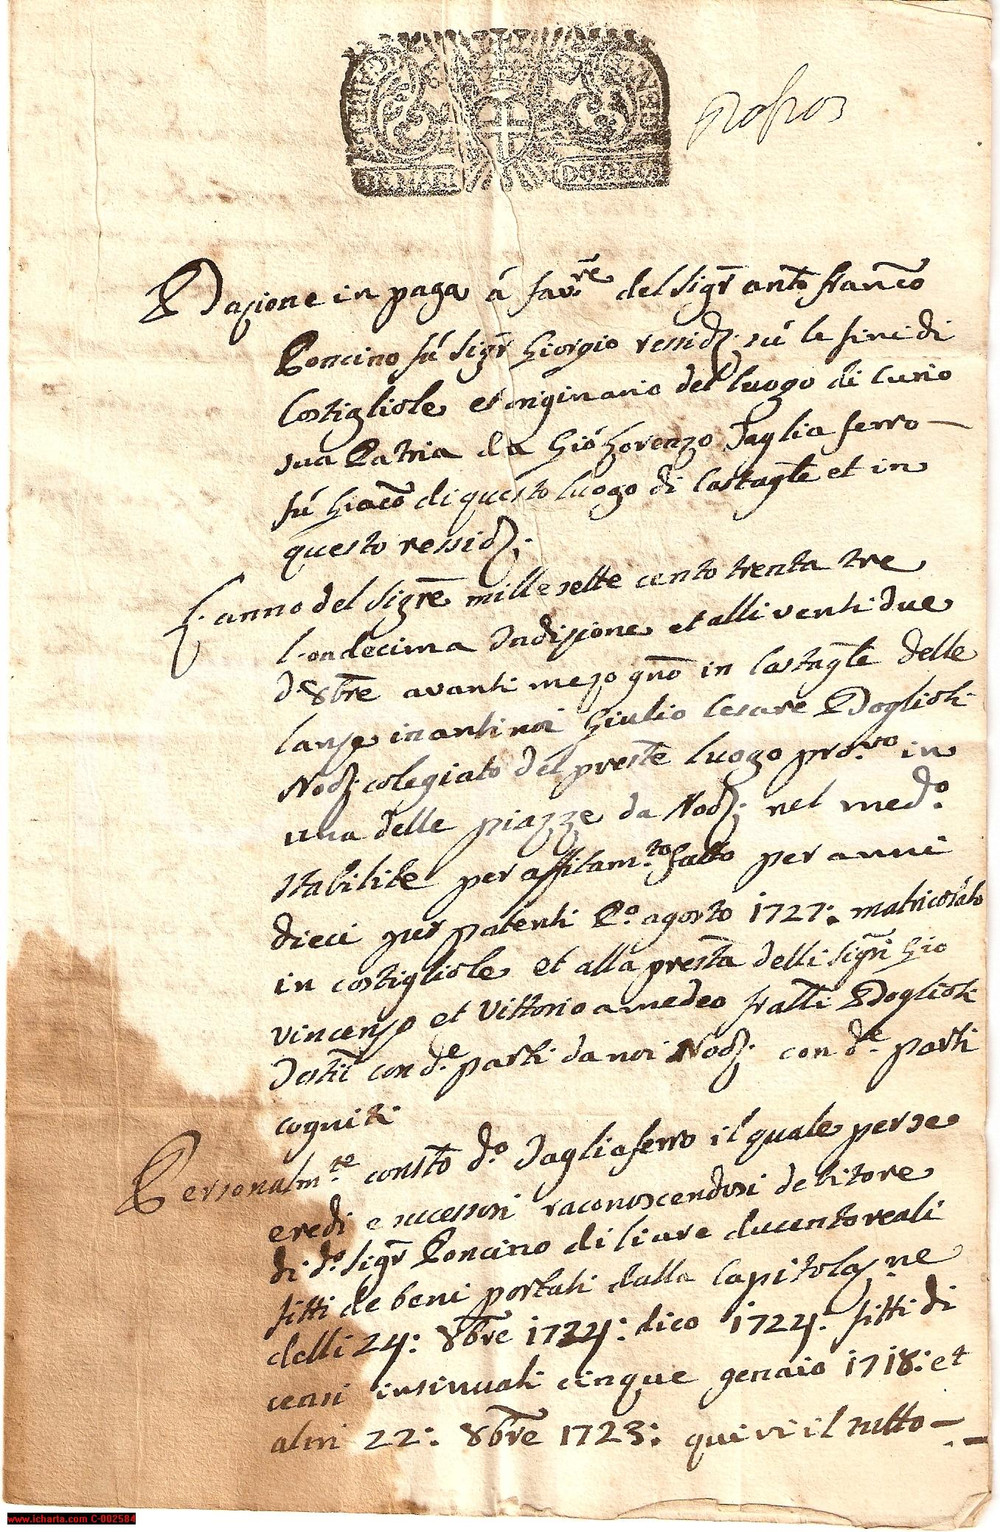 DENARI DODECI
Dazione in paga á fav.re del Sigr anto franco
Poncino fú Sigr Giorgio ressidt; sú le fini di
Costigliole et originario del luogo di Cunio
sua Patria da Gió Lorenzo Tagliaferro —
fú Giaco di questo luogo di Castagte et in
questo ressidt;
L'anno del Sigre mille sette cento trenta tre
l'ondecima Indizione et alli venti due
d'8bre avanti mezo gno in Castagte delle
lanze inanti noi Giulio Cesare Doglioli
Nodt colegiato del preste luogo pro.vo in
una delle piazze da Nodt; nel med.o
stabilite per affitam.to fatto per anni
dieci per patenti P.o agosto 1727: matricolato
in costigliole et alla presta delli Sigri Gio
vincenzo et Vittorio amedeo fratti Doglioli
Testii con d.e parti da noi Nodt. con d.e parti
cogniti
Personalm.te consto d.o Tagliaferro il quale per se
eredi e successori raconoscendosi debitore
di d.o Sigr Poncino di liure ducento reali
fitti de beni portati dalla Capitolaz.ne
delli 24: 8bre 1724: dico 1724: fitti di
censi insinuati cinque genaio 1718: et
altri 22: 8bre 1723: quivi il tutto —
www.icharta.com C-002584